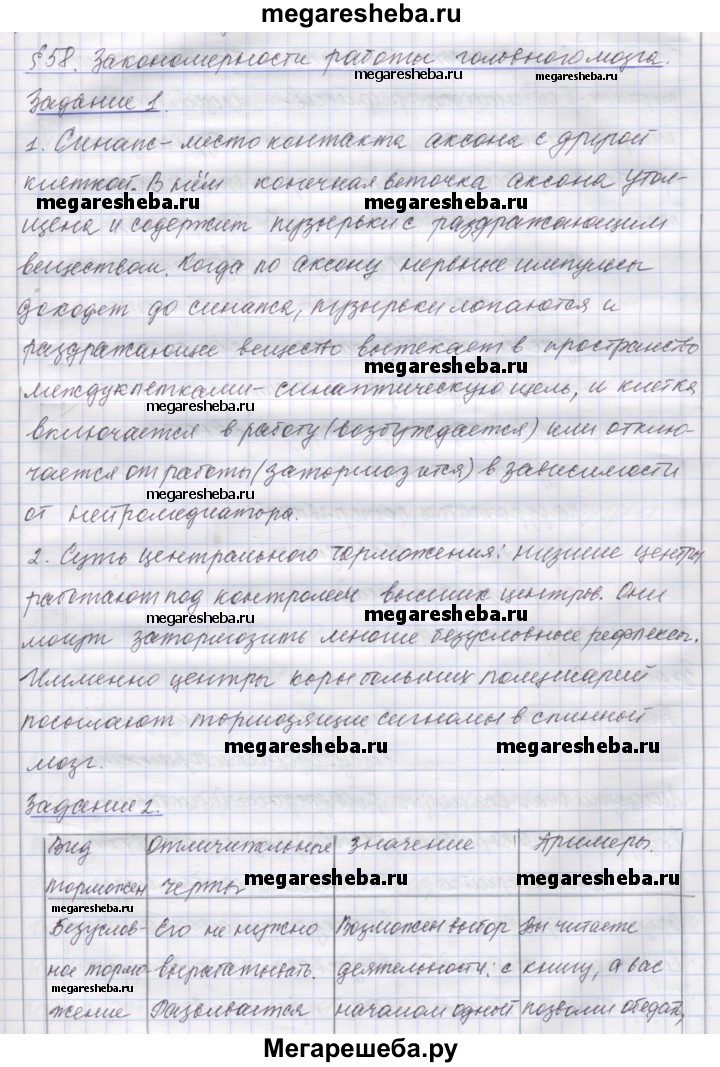 megaresheba.ru
§58. Закономерности работы головного мозга.
megaresheba.ru megaresheba.ru
Задание 1.
1. Синапс - место контакта аксона с другой
клеткой. В нём конечная веточка аксона утол-
megaresheba.ru megaresheba.ru
щена и содержит пузырьки с раздражающим
веществом. Когда по аксону нервные импульсы
доходят до синапса, пузырьки лопаются и
раздражающее вещество вытекает в пространство
megaresheba.ru
между клетками - синаптическую щель, и клетка
megaresheba.ru
включается в работу (возбуждается) или отклю-
чается от работы (затормозится) в зависимости
megaresheba.ru
от нейромедиатора.
2. Суть центрального торможения: низшие центры
работают под контролем высших центров. Они
megaresheba.ru
могут затормозить многие безусловные рефлексы.
Именно центры коры больших полушарий
посылают тормозящие сигналы в спинной
megaresheba.ru megaresheba.ru
мозг.
Задание 2.
Вид Отличительные Значение Примеры.
торможен черты
megaresheba.ru megaresheba.ru
megaresheba.ru
Безуслов- Его не нужно Возможен выбор Вы читаете
ное тормо- вырабатывать. деятельности: с книгу, а вас
megaresheba.ru
жение Развивается началом одной позвали обедать,
megaresheba.ru megaresheba.ru
Мегарешеба.ру